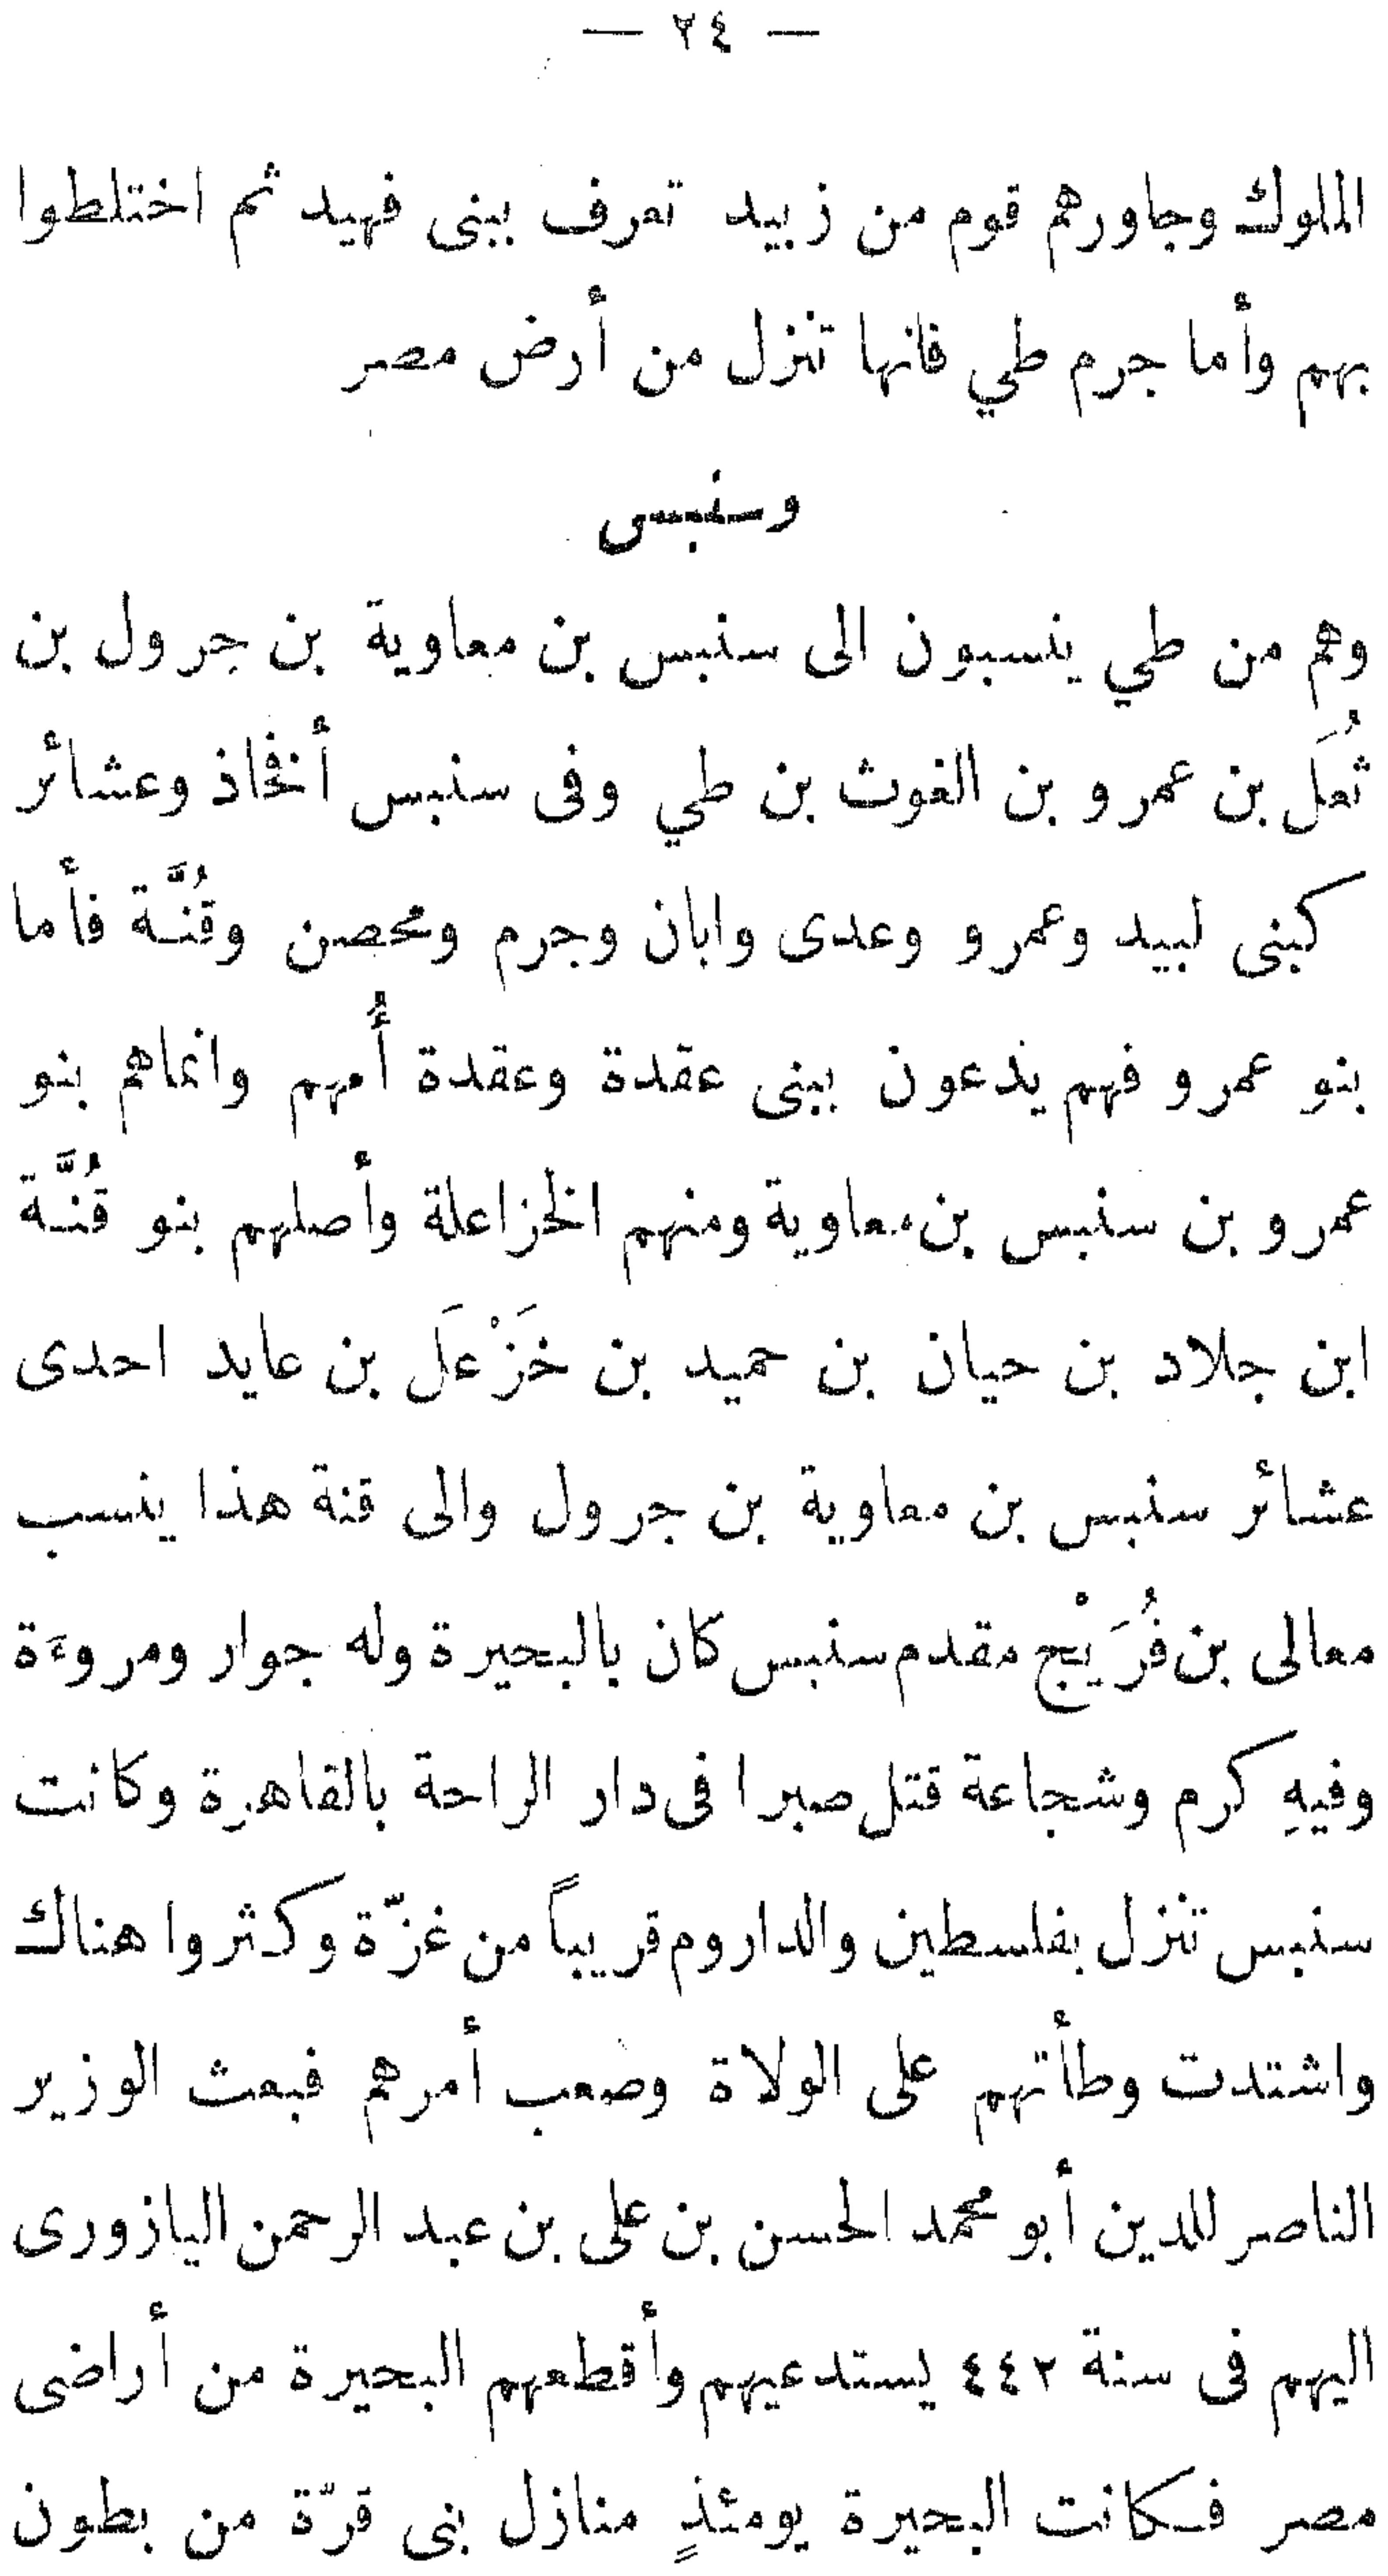 — ٢٤ —
الملوك وجاورهم قوم من زبيد تعرف ببنى فهيد ثم اختلطوا
بهم وأما جرم طي فانها تنزل من أرض مصر
وسنبس
وهم من طي ينسبون الى سنبس بن معاوية بن جرول بن
ثُعَل بن عمرو بن الغوث بن طي وفى سنبس أنخاذ وعشائر
كبنى لبيد وعمرو وعدى وابان وجرم ومحصن وقُنَّة فأما
بنو عمرو فهم يذعون ببنى عقدة وعقدة أُمهم وانماهم بنو
عمرو بن سنبس بن معاوية ومنهم الخزاعلة وأصلهم بنو قُنَّة
ابن جلاد بن حيان بن حميد بن خَزْعَل بن عايد احدى
عشائر سنبس بن معاوية بن جرول والى قنة هذا ينسب
معالى بن فُرَيْج مقدم سنبس كان بالبحيرة وله جوار ومروءَة
وفيهِ كرم وشجاعة قتل صبرا فى دار الراحة بالقاهرة وكانت
سنبس تنزل بفلسطين والداروم قريباً من غزّة وكثروا هناك
واشتدت وطأتهم على الولاة وصعب أمرهم فبعث الوزير
الناصر للدين أبو محمد الحسن بن على بن عبد الرحمن اليازورى
اليهم فى سنة ٤٤٢ يستدعيهم وأقطعهم البحيرة من أراضى
مصر فكانت البحيرة يومئذٍ منازل بنى قرّة من بطون